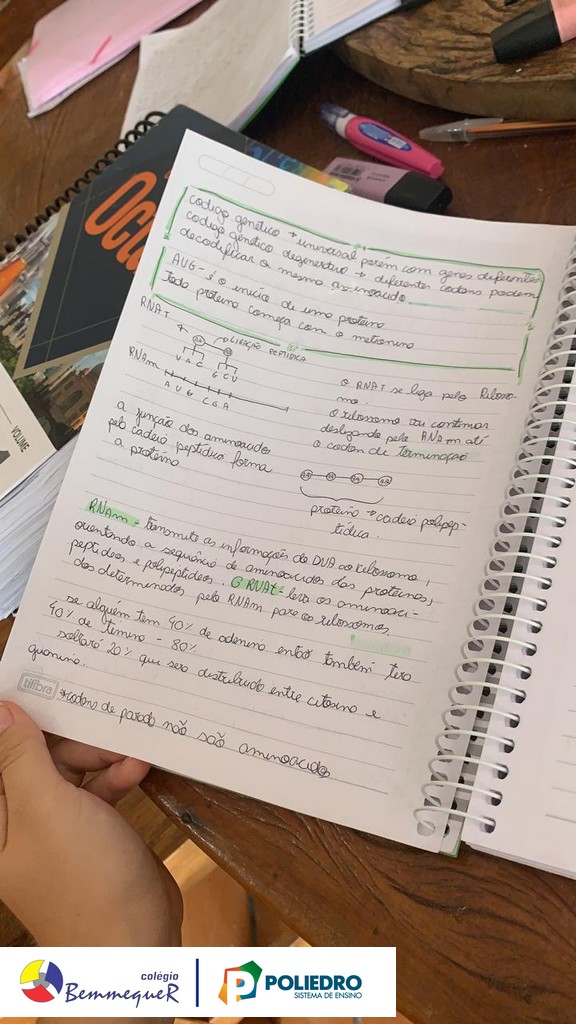 Octa
VOLUME
codigo genético → universal porém com genes diferentes
codigo genético degenerativo → diferentes codons podem
decodificar o mesmo aminoacido
AUG - é o inicio de uma proteina
Toda proteina começa com a metionina
RNAT
LIGAÇÃO PEPTÍDICA
aa
aa
UAC GCU
RNAm
AUG CGA
o RNAT se liga pelo Ribosso-
mo.
o ribossomo vai continuar
deslizando pelo RNAm até
o codon de terminação
a junção dos aminoacidos
pela cadeia peptidica forma
a proteina
aa aa aa aa
proteina → cadeia polipep-
tídica.
RNAm - transmite as informações do DNA ao ribossomo,
orientando a sequência de aminoacidos das proteinas,
peptideos e polipeptideos. O RNAt - leva os aminoaci-
dos determinados pelo RNAm para os ribossomos.
se alguém tem 40% de adenina então também tera
40% de timina - 80%
saltará 20% que sera distribuido entre citosina e
guanina.
tilibra
*codons de parada não são aminoacidos
colégio
BemmequeR
POLIEDRO
SISTEMA DE ENSINO